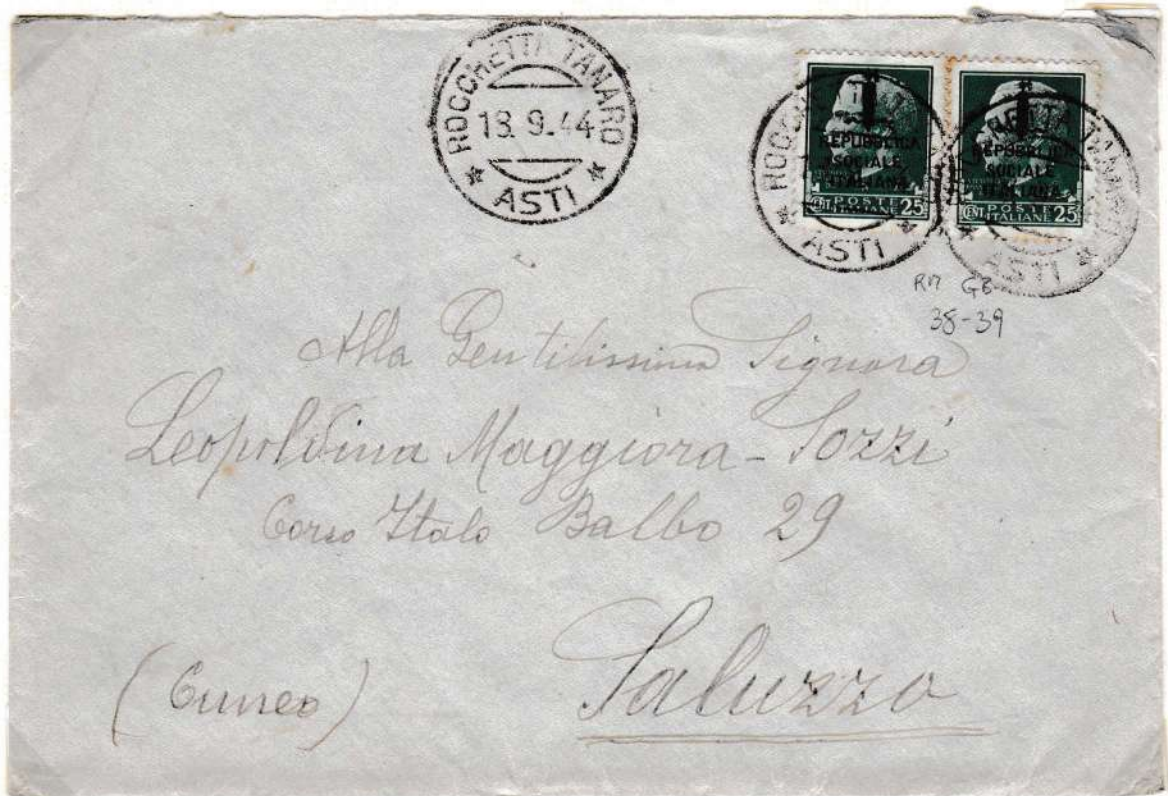 ROCCHETTA TANARO
18.9.44
* ASTI *
REPUBBLICA
SOCIALE
ITALIANA
CENT. POSTE ITALIANE 25
ROCCHETTA
* ASTI *
REPUBBLICA
SOCIALE
ITALIANA
CENT. POSTE ITALIANE 25
TANARO
* ASTI *
RM GB
38-39
Alla Gentilissima Signora
Leopoldina Maggiora-Sozzi
Corso Italo Balbo 29
Saluzzo
(Cuneo)